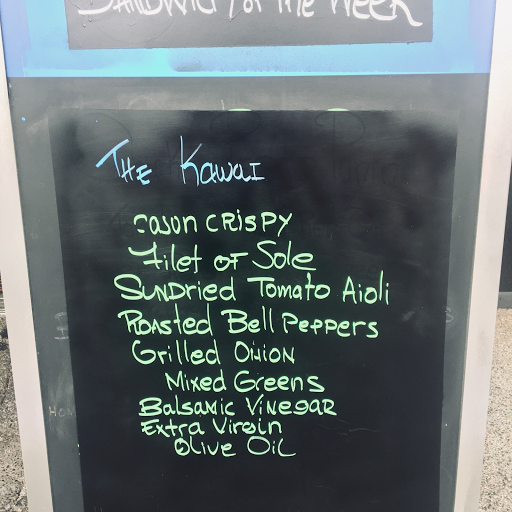 SANDWICH OF THE WEEK
THE KAWAI
CRISPY
Filet OF Sole
SUNDried Tomato Aioli
Roasted Bell Peppers
Grilled Onion
Mixed Greens
Balsamic Vinegar
Extra Virgin
Olive Oil